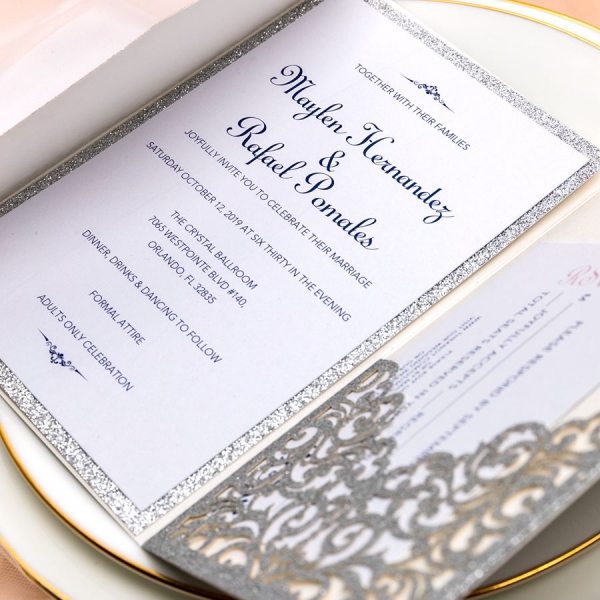 TOGETHER WITH THEIR FAMILIES
Maylen Hernandez
&
Rafael Pomales
JOYFULLY INVITE YOU TO CELEBRATE THEIR MARRIAGE
SATURDAY OCTOBER 12, 2019 AT SIX THIRTY IN THE EVENING
THE CRYSTAL BALLROOM
7065 WESTPOINTE BLVD #140,
ORLANDO, FL 32835
DINNER, DRINKS & DANCING TO FOLLOW
FORMAL ATTIRE
ADULTS ONLY CELEBRATION
PLEASE RESPOND BY SEPTEMBER
M
JOYFULLY ACCEPTS
TOTAL SEATS RESERVED IN